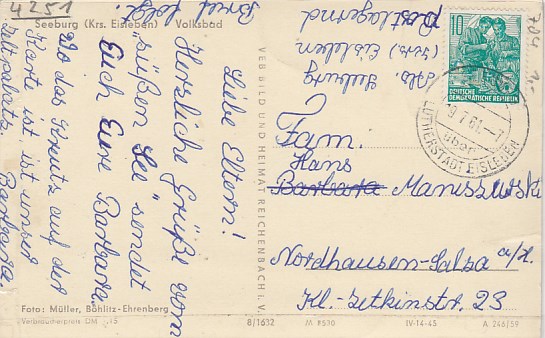 4251
Seeburg (Krs. Eisleben) Volksbad
Brief folgt.
Liebe Eltern!
Herzliche Grüße vom
„süßen See" sendet
Euch Eure Barbara.
Wo das Kreutz auf der
Kart ist, ist unser
Zeltpalatz.
Barbara.
Foto: Müller, Böhlitz-Ehrenberg
Verbraucherpreis DM -,15
VEB BILD UND HEIMAT REICHENBACH i. V.
8/1632
M 8530
IV-14-45
A 246/59
Postlagernd
(Krs.) Eisleben
Abs. Seeburg
10
DEUTSCHE
DEMOKRATISCHE REPUBLIK
über
LUTHERSTADT EISLEBEN
Fam.
Hans
Barbara Maniszewski
Nordhausen-Salza a/H.
Kl.-Zetkinstr. 23